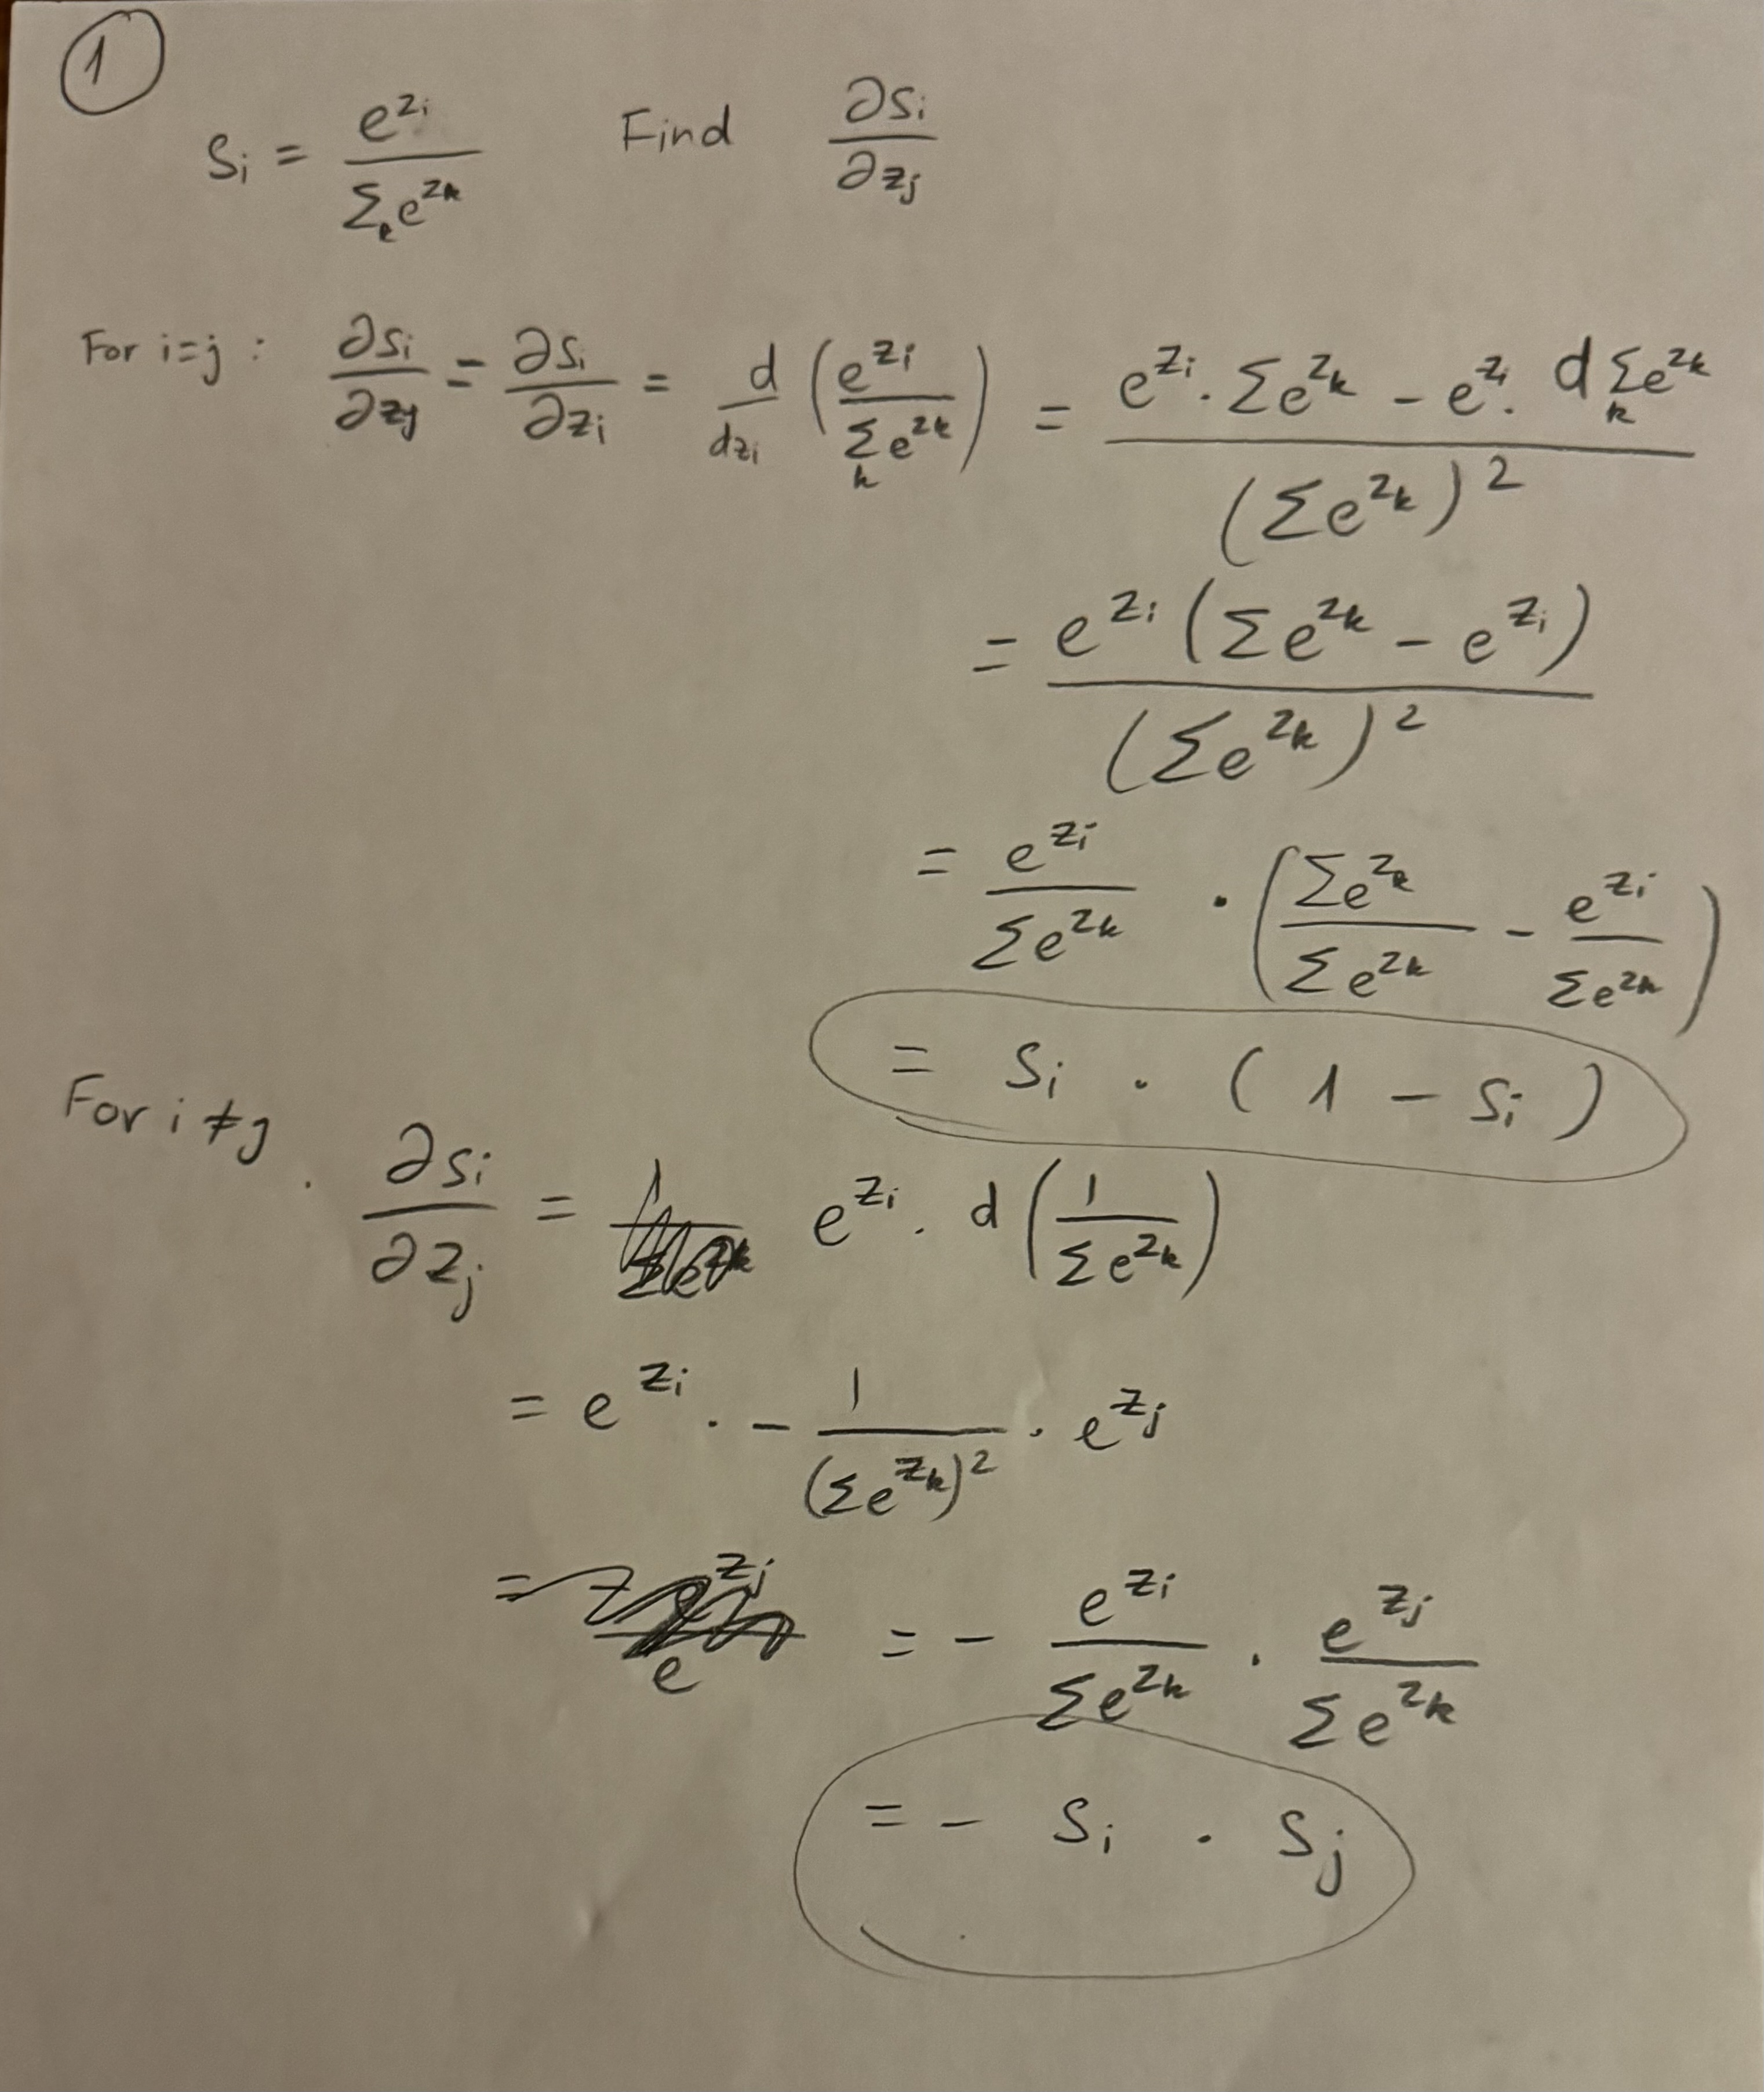 ①
Sᵢ = e^{zᵢ} / Σₖ e^{zₖ}   Find   ∂Sᵢ / ∂zⱼ
For i=j : ∂Sᵢ / ∂zⱼ = ∂Sᵢ / ∂zᵢ = d / dzᵢ ( e^{zᵢ} / Σₖ e^{zₖ} ) = ( e^{zᵢ} · Σe^{zₖ} - e^{zᵢ} · d Σₖ e^{zₖ} ) / ( Σe^{zₖ} )²
= e^{zᵢ} ( Σe^{zₖ} - e^{zᵢ} ) / ( Σe^{zₖ} )²
= e^{zᵢ} / Σe^{zₖ} · ( Σe^{zₖ} / Σe^{zₖ} - e^{zᵢ} / Σe^{zₖ} )
= Sᵢ · ( 1 - Sᵢ )
For i ≠ j . ∂Sᵢ / ∂zⱼ = e^{zᵢ} · d ( 1 / Σe^{zₖ} )
= e^{zᵢ} · - 1 / ( Σe^{zₖ} )² · e^{zⱼ}
= = - e^{zᵢ} / Σe^{zₖ} · e^{zⱼ} / Σe^{zₖ}
= - Sᵢ · Sⱼ